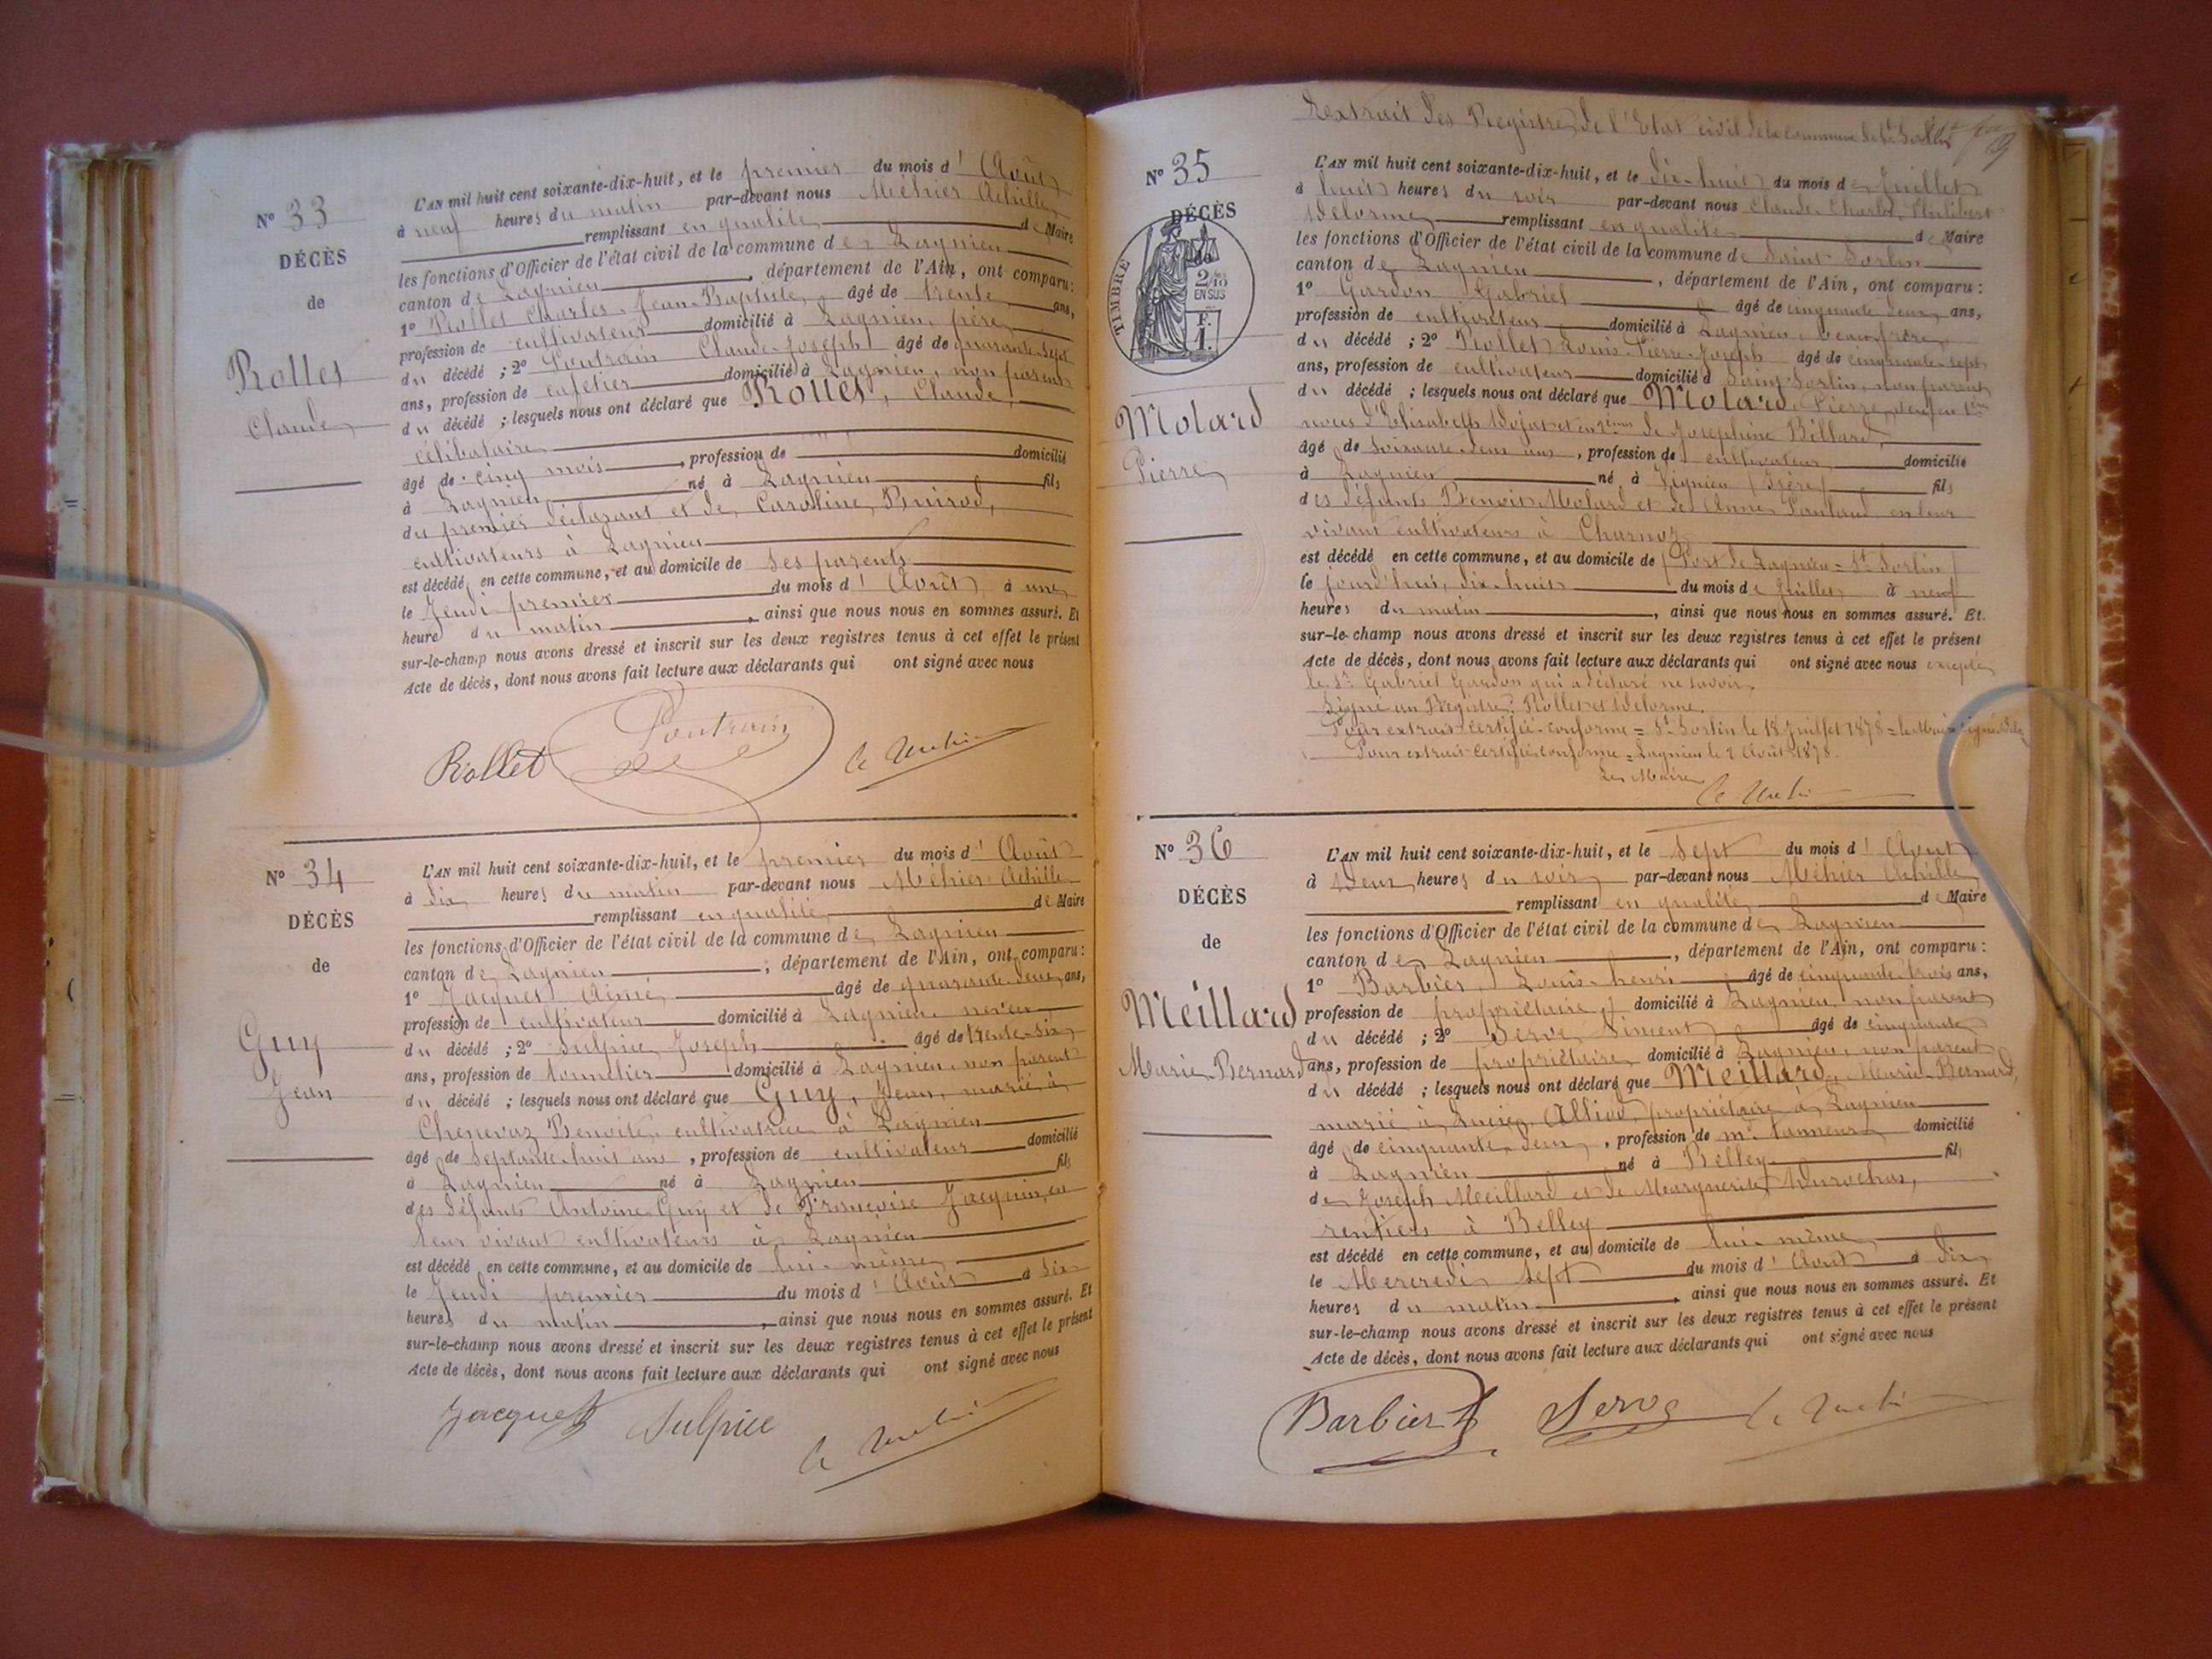 N° 33
DÉCÈS
de
Rollet
Claude
L'AN mil huit cent soixante-dix-huit, et le premier du mois d'Août
à neuf heures du matin par-devant nous Méhier Achille
remplissant en qualité de Maire
les fonctions d'Officier de l'état civil de la commune de Lagnieu
canton de Lagnieu, département de l'Ain, ont comparu:
1° Rollet Charles Jean-Baptiste, âgé de trente ans,
profession de cultivateur domicilié à Lagnieu, père
du décédé ; 2° Poutrain Claude-Joseph âgé de quarante-sept
ans, profession de cafetier domicilié à Lagnieu, non parent
du décédé ; lesquels nous ont déclaré que Rollet, Claude,
célibataire
âgé de cinq mois, profession de domicilié
à Lagnieu né à Lagnieu fils
du premier déclarant et de Caroline
cultivateurs à Lagnieu
est décédé en cette commune, et au domicile de ses parents
le Jeudi premier du mois d'Août à une
heure du matin, ainsi que nous nous en sommes assuré. Et
sur-le-champ nous avons dressé et inscrit sur les deux registres tenus à cet effet le présent
Acte de décès, dont nous avons fait lecture aux déclarants qui ont signé avec nous
Rollet Poutrain
N° 34
DÉCÈS
de
Guy
Jean
L'AN mil huit cent soixante-dix-huit, et le premier du mois d'Août
à dix heures du matin par-devant nous Méhier Achille
remplissant en qualité de Maire
les fonctions d'Officier de l'état civil de la commune de Lagnieu
canton de Lagnieu, département de l'Ain, ont comparu:
1° Jacquet Aimé, âgé de quarante-deux ans,
profession de cultivateur domicilié à Lagnieu, neveu
du décédé ; 2° Sulpice Joseph âgé de trente-six
ans, profession de tonnelier domicilié à Lagnieu, non parent
du décédé ; lesquels nous ont déclaré que Guy, Jean, marié à
Chenevaz Benoite, cultivatrice à Lagnieu
âgé de septante-huit ans, profession de cultivateur domicilié
à Lagnieu né à Lagnieu fils
des défunts Antoine Guy et de Françoise Jacquin, en
leur vivant cultivateurs à Lagnieu
est décédé en cette commune, et au domicile de lui-même
le Jeudi premier du mois d'Août à six
heures du matin, ainsi que nous nous en sommes assuré. Et
sur-le-champ nous avons dressé et inscrit sur les deux registres tenus à cet effet le présent
Acte de décès, dont nous avons fait lecture aux déclarants qui ont signé avec nous
Jacquet Sulpice
Extrait des Registres de l'Etat civil de la commune de St Sorlin
N° 35
DÉCÈS
TIMBRE
2/10
EN SUS
Molard
Pierre
L'AN mil huit cent soixante-dix-huit, et le dix-huit du mois de Juillet
à huit heures du soir par-devant nous Claude-Charles Philibert
Delorme remplissant en qualité de Maire
les fonctions d'Officier de l'état civil de la commune de Saint-Sorlin
canton de Lagnieu, département de l'Ain, ont comparu:
1° Gardon Gabriel âgé de cinquante-deux ans,
profession de cultivateur domicilié à Lagnieu, beau-frère
du décédé ; 2° Rollet Louis-Pierre-Joseph âgé de cinquante-sept
ans, profession de cultivateur domicilié à Saint-Sorlin, non parent
du décédé ; lesquels nous ont déclaré que Molard, Pierre,
noces d'Elisabeth et en 2èmes de Josephine Billard,
âgé de soixante-deux ans, profession de cultivateur domicilié
à Lagnieu né à (Isère) fils
des défunts Benoit Molard et de Anne en leur
vivant cultivateurs à Charnoz
est décédé en cette commune, et au domicile de (Port de Lagnieu = St Sorlin)
le jourd'hui, dix-huit du mois de Juillet à neuf
heures du matin, ainsi que nous nous en sommes assuré. Et
sur-le-champ nous avons dressé et inscrit sur les deux registres tenus à cet effet le présent
Acte de décès, dont nous avons fait lecture aux déclarants qui ont signé avec nous excepté
le Sr Gabriel Gardon qui a déclaré ne savoir.
Signé au Registre: Rollet et Delorme.
Pour extrait certifié conforme = St Sorlin le 18 Juillet 1878 = le Maire signé
Pour extrait certifié conforme = Lagnieu le 2 Août 1878.
Le Maire
N° 36
DÉCÈS
de
Meillard
Marie-Bernard
L'AN mil huit cent soixante-dix-huit, et le sept du mois d'Août
à deux heures du soir par-devant nous Méhier Achille
remplissant en qualité de Maire
les fonctions d'Officier de l'état civil de la commune de Lagnieu
canton de Lagnieu, département de l'Ain, ont comparu:
1° Barbier, Louis-henri âgé de cinquante-trois ans,
profession de propriétaire domicilié à Lagnieu, non parent
du décédé ; 2° Serve âgé de cinquante
ans, profession de propriétaire domicilié à Lagnieu, non parent
du décédé ; lesquels nous ont déclaré que Meillard, Marie-Bernard,
marié à propriétaire à Lagnieu
âgé de cinquante-deux, profession de m. tanneur domicilié
à Lagnieu né à Belley fils
de Joseph Meillard et de Marguerite Durochas,
rentiers à Belley
est décédé en cette commune, et au domicile de lui-même
le Mercredi sept du mois d'Août à dix
heures du matin, ainsi que nous nous en sommes assuré. Et
sur-le-champ nous avons dressé et inscrit sur les deux registres tenus à cet effet le présent
Acte de décès, dont nous avons fait lecture aux déclarants qui ont signé avec nous
Barbier Serve